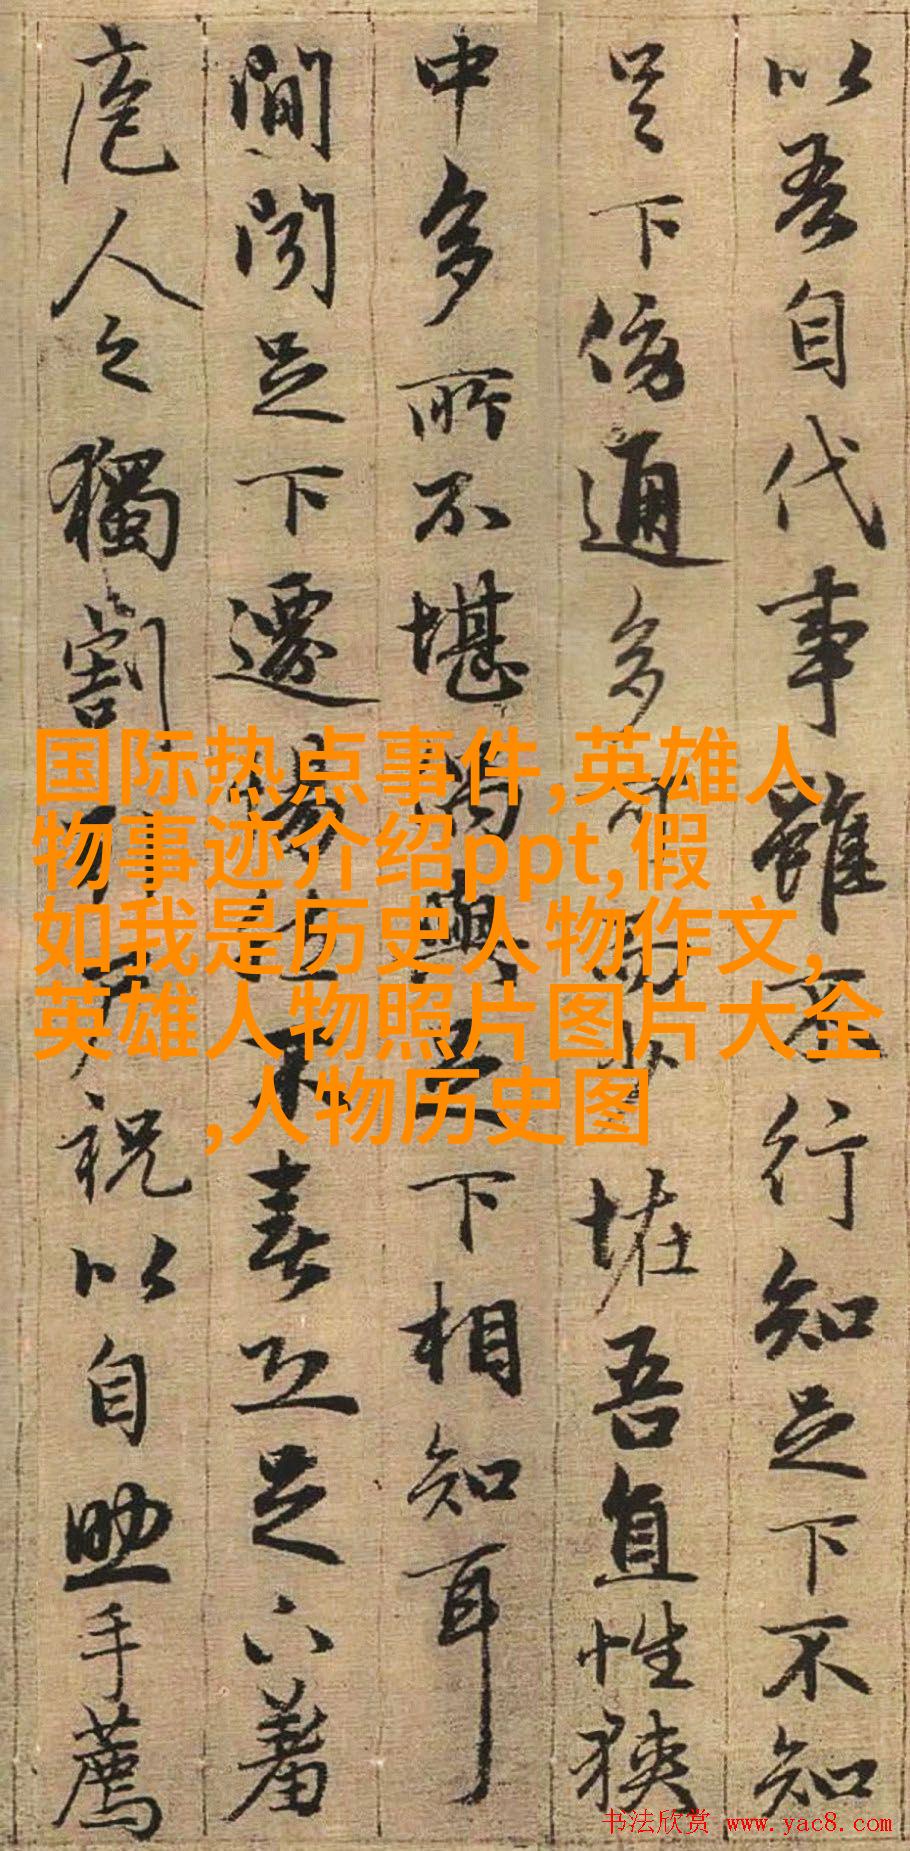 以吾自代事雖不行知足下不知
足下傍通多可而少恠吾直性狹
中多所不堪偶與足下相知耳
間聞足下遷惕然不喜恐足下羞
庖人之獨割引尸祝以自助手薦
国际热点事件,英雄人
物事迹介绍ppt,假
如我是历史人物作文,
英雄人物照片图片大全
,人物历史图
书法欣赏 www.yac8.com